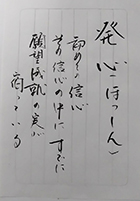 発心(ほっしん)
初めての信心
その信心の中に すでに
願望成就の実心
宿っている